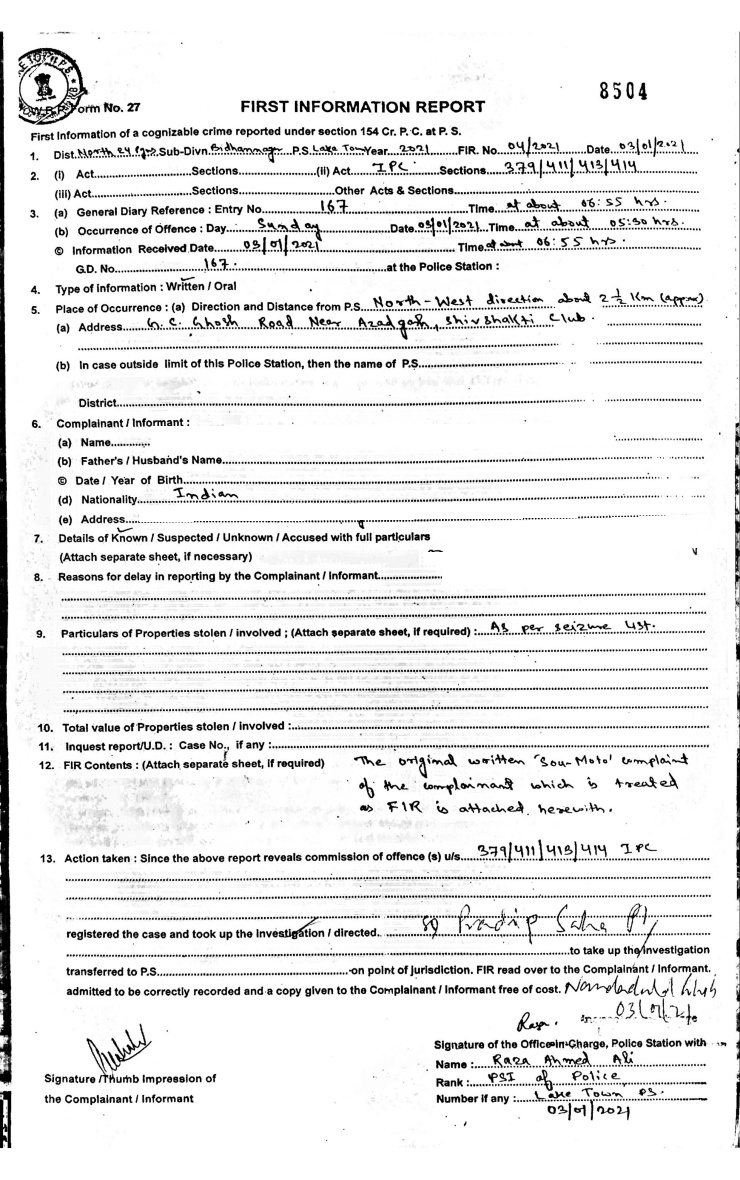 8504
Form No. 27 FIRST INFORMATION REPORT
First Information of a cognizable crime reported under section 154 Cr. P. C. at P. S.
1. Dist. North 24 Pgs. Sub-Divn. Bidhannagar P.S. Lake Town Year 2021 FIR. No 04/2021 Date 03/01/2021
2. (i) Act Sections (ii) Act IPC Sections 379/411/413/414
(iii) Act Sections Other Acts & Sections
3. (a) General Diary Reference : Entry No 167 Time at about 06:55 hrs.
(b) Occurrence of Offence : Day Sunday Date 03/01/2021 Time at about 05:30 hrs.
© Information Received Date 03/01/2021 Time at about 06:55 hrs.
G.D. No. 167. at the Police Station :
4. Type of information : Written / Oral
5. Place of Occurrence : (a) Direction and Distance from P.S. North-West direction about 2 ½ Km (approx)
(a) Address G. C. Ghosh Road Near Azadgarh, Shiv Shakti Club.
(b) In case outside limit of this Police Station, then the name of P.S
District
6. Complainant / Informant :
(a) Name
(b) Father's / Husband's Name
© Date / Year of Birth
(d) Nationality Indian
(e) Address
7. Details of Known / Suspected / Unknown / Accused with full particulars
(Attach separate sheet, if necessary)
8. Reasons for delay in reporting by the Complainant / Informant
9. Particulars of Properties stolen / involved ; (Attach separate sheet, if required) : As per seizure list.
10. Total value of Properties stolen / involved :
11. Inquest report/U.D. : Case No., if any :
12. FIR Contents : (Attach separate sheet, if required) The original written 'Sou-Moto' complaint
of the complainant which is treated
as FIR is attached herewith.
13. Action taken : Since the above report reveals commission of offence (s) u/s. 379/411/413/414 IPC
registered the case and took up the investigation / directed. SI Pradip Saha
to take up the investigation
transferred to P.S. on point of jurisdiction. FIR read over to the Complainant / Informant.
admitted to be correctly recorded and a copy given to the Complainant / Informant free of cost.
Raza.
Signature of the Office-in-Charge, Police Station with
Name : Raza Ahmed Ali
Signature / Thumb Impression of Rank : PSI of Police
the Complainant / Informant Number if any : Lake Town PS.
03/01/2021